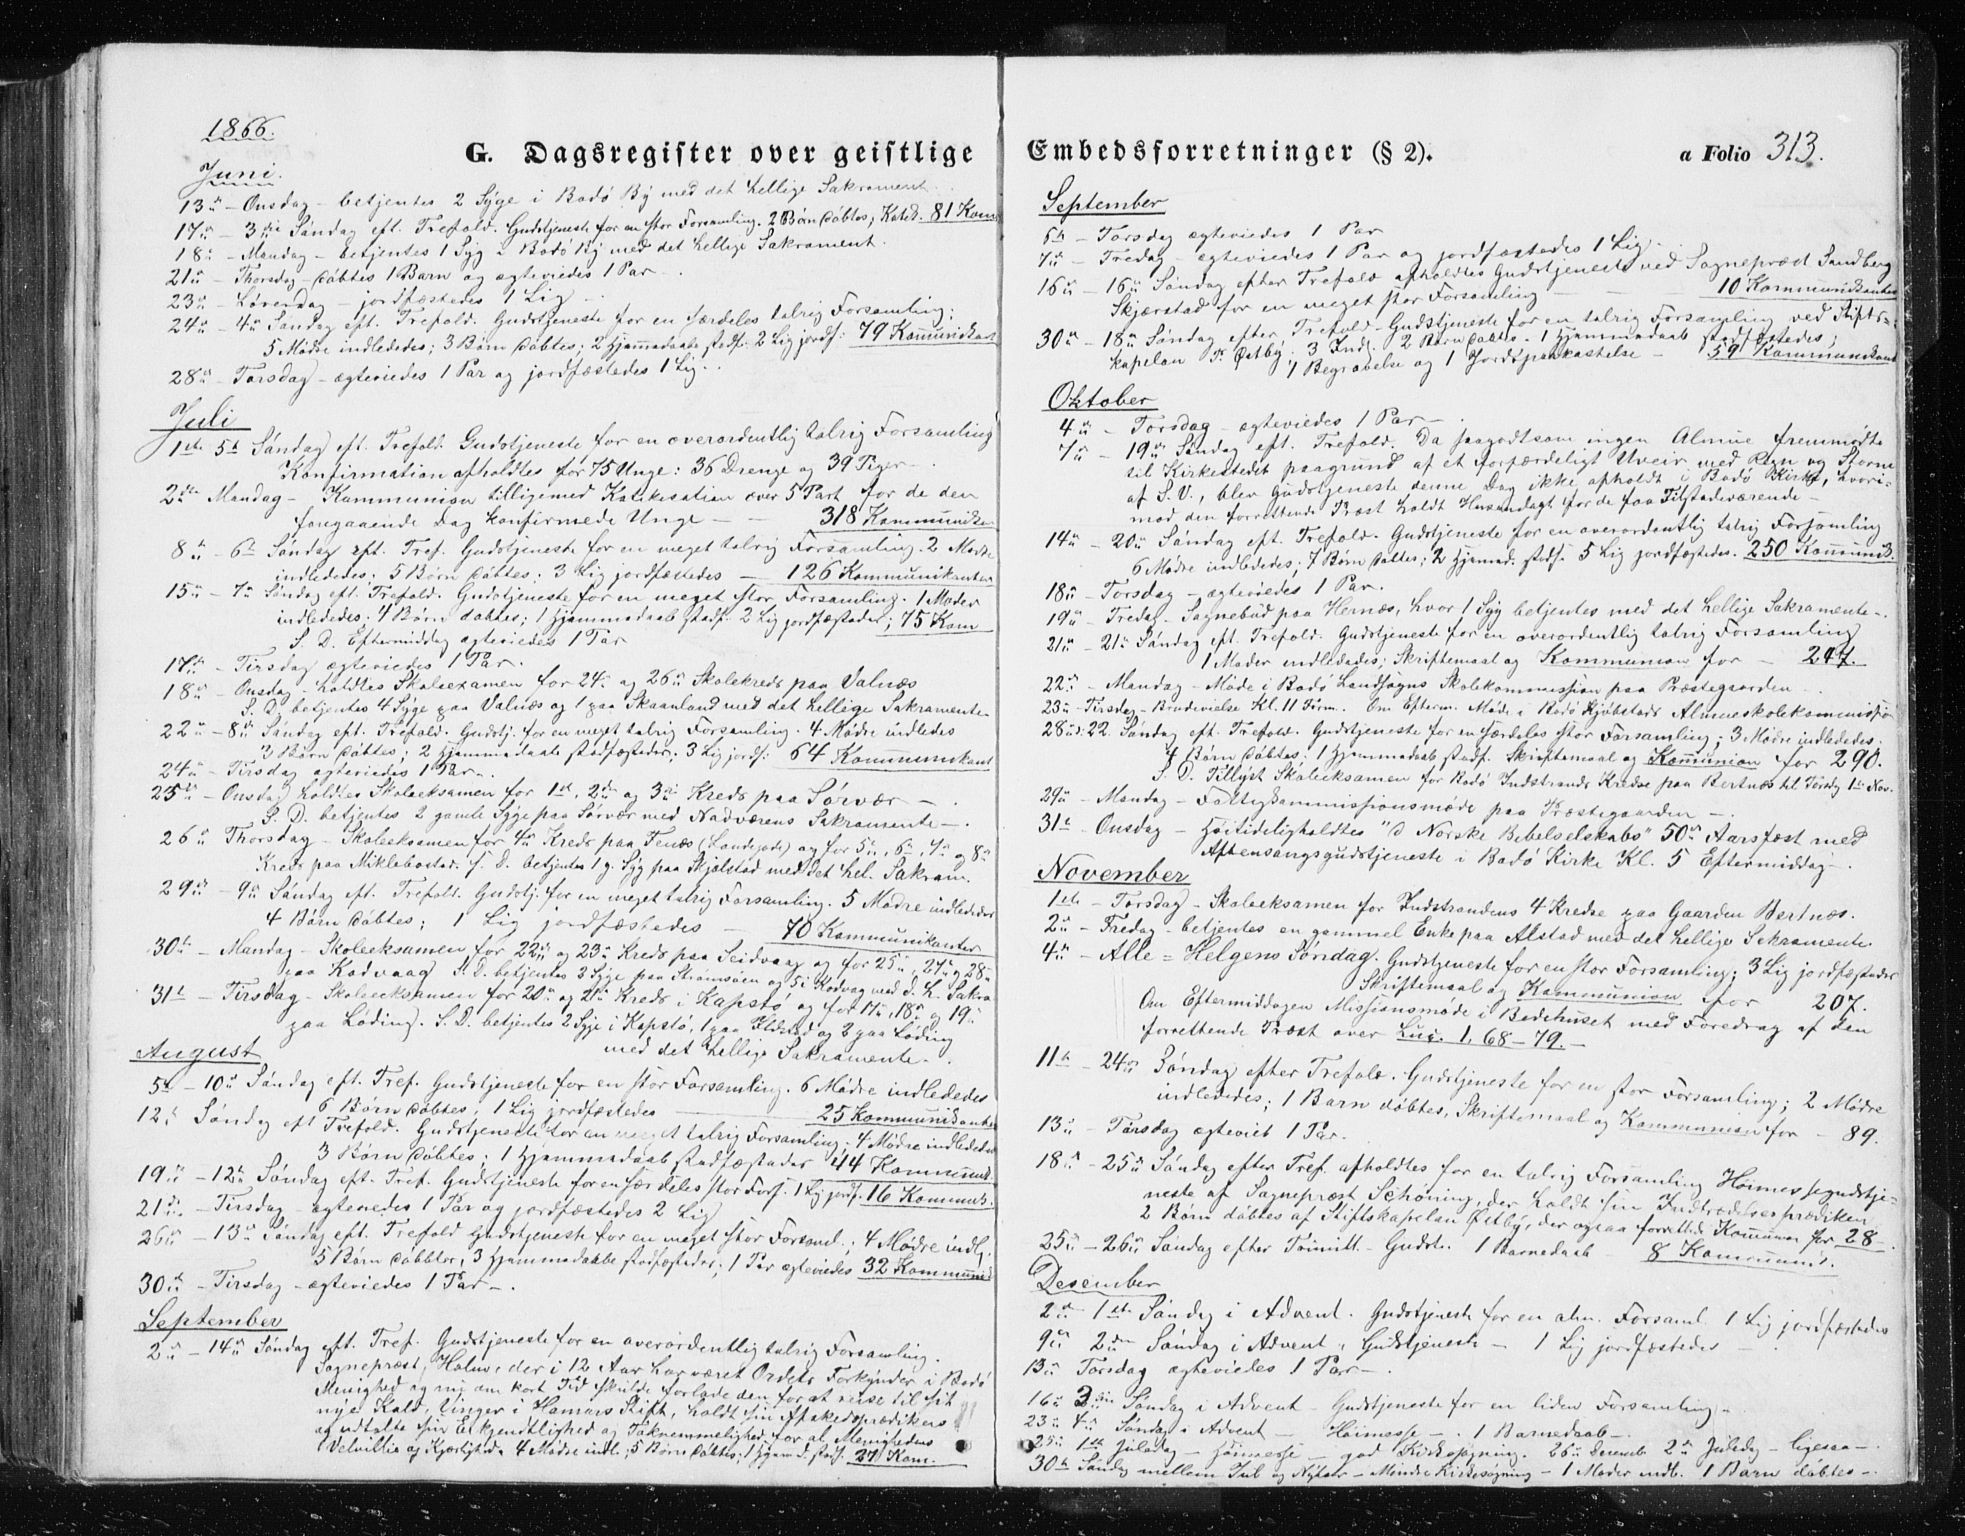 1866.
G. Dagsregister over geistlige
Juni.
13de – Onsdag – betjentes 2 Syge i Bodö By med det hellige Sakrament.
17de – 3die Søndag eft. Trefold. Gudstjeneste for en stor Forsamling. 2 Børn døbtes; Katek. 81 Kom
18de – Mandag – betjentes 1 Syg i Bodö By med det hellige Sakrament.
21de – Thorsdag – døbtes 1 Barn og ægteviedes 1 Par –
23de – Løverdag – jordfæstedes 1 Lig –
24de – 4de Søndag eft. Trefold. Gudstjeneste for en særdeles talrig Forsamling;
5 Mødre indlededes; 3 Børn døbtes; 2 Hjemmedaab stadf. 2 Lig jordf: 79 Kommunikant
28de – Torsdag – ægteviedes 1 Par og jordfæstedes 1 Lig.
Juli
1ste 5te Søndag eft. Trefold. Gudstjeneste for en overordentlig talrig Forsamling
Konfirmation afholdtes for 75 Unge: 36 Drenge og 39 Piger –
2den Mandag – Kommunion tilligemed Katekisation over 5 Part for de den
foregaaende Dag konfirmede Unge – – 318 Kommunikan
8de – 6te Søndag eft. Tref. Gudstjeneste for en meget talrig Forsamling. 2 Mødre
indlededes; 5 Børn døbtes; 3 Lig jordfæstedes – 126 Kommunikanter
15de – 7de Søndag eft. Trefold. Gudstjeneste for en meget stor Forsamling. 1 Moder
indlededes; 4 Børn døbtes; 1 Hjemmedaab stadf. 2 Lig jordfæstedes; 75 Kom
S. D. Eftermiddag ægteviedes 1 Par
17de – Tirsdag ægteviedes 1 Par.
18de – Onsdag – holdtes Skoleexamen for 24de og 26de Skolekreds paa Valnæs
S. D. betjentes 4 Syge paa Valnæs og 1 paa Skaanland med det hellige Sakramente
22de – 8de Søndag eft. Trefold. Gudstj. for en meget talrig Forsamling. 4 Mødre indledes
3 Børn døbtes; 2 Hjemmedaab stadfæstedes; 3 Lig jordf: 64 Kommunikant
24de – Tirsdag ægteviedes 1 Par –
25de – Onsdag holdtes Skoleeksamen for 1ste, 2den og 3die Kreds paa Sørvær –
S. D. betjentes 2 gamle Syge paa Sørvær med Nadverens Sakramente –
26de Thorsdag – Skoleeksamen for 4de Kreds paa Fenæs (Landegode) og for 5te, 6te, 7de og 8de
Kreds paa Miklebostad. S. D. betjentes 1 g. Syg paa Skjelstad med det hel. Sakram.
29de – 9de Søndag eft. Trefold. Gudstj. for en meget talrig Forsamling. 5 Mødre indlededes
4 Børn døbtes; 1 Lig jordfæstedes – 70 Kommunikanter
30te – Mandag – Skoleeksamen for 22de og 23de Kreds paa Seidvaag og for 25de, 27de og 28de
paa Kodvaag S. D. betjentes 3 Syge paa Strømsøen og 5 i Kodvag med d. h. Sakra
31te – Tirsdag – Skoleeksamen for 20de og 21de Kreds i Kapstø og for 17de, 18de og 19de
paa Løding. S. D. betjentes 2 Syge i Kapstø, 1 paa Ildstad og 2 paa Løding
med det hellige Sakramente –
August
5te – 10de Søndag eft. Tref. Gudstjeneste for en stor Forsamling. 6 Mødre indlededes
6 Børn døbtes, 1 Lig jordfæstedes – 25 Kommunikanter
12te Søndag eft Trefold. Gudstjeneste for en meget talrig Forsamling – 4 Mødre indlededes
3 Børn døbtes; 1 Hjemmedaab stadfæstedes 44 Kommunik.
19de – 12te Søndag eft. Tref. Gudstjeneste for en særdeles stor Fors. 1 Lig jordf. 16 Kommuk.
21de – Tirsdag – ægteviedes 1 Par og jordfæstedes 2 Lig
26de – 13de Søndag eft. Trefold Gudstjeneste for en meget stor Forsaml.; 4 Mødre indl.
5 Børn døbtes; 3 Hjemmedaabe stadfæstedes; 1 Par ægteviedes 32 Kommunik
30te – Tirsdag – ægteviedes 1 Par –.
September
2den – 14de Søndag eft. Tref. Gudstjeneste for en overordentlig talrig Forsamling.
Sognepræst Holm, der i 12 Aar har været Ordets Forkynder i Bodö
Menighed og nu om kort Tid skulde forlade den for at reise til sit
nye Kald, Ringer i Hamars Stift, holdt sin Afskedsprædiken
og udtalte sin Erkjendtlighed og Taknemmelighed for al Menighedens
Velvillie og Kjærlighed. 4 Mødre indl; 5 Børn døbtes; 1 Hjem d. stadf. 27 Kom.
Embedsforretninger (§ 2).
a Folio 313.
September
6te – Torsdag ægteviedes 1 Par
7de – Fredag – ægteviedes 1 Par og jordfæstedes 1 Lig –
16de – 16de Søndag efter Trefold afholdtes Gudstjeneste ved Sognepræst Sandberg
Skjærstad for en meget stor Forsamling – 10 Kommunikanter
30te – 18de Søndag efter Trefold – Gudstjeneste for en talrig Forsamling ved Stifts-
kapelan Hr. Østby. 3 Indl. 2 Børn døbtes. 1 Hjemmedaab stadfæstedes;
1 Begravelse og 1 Jordspaakastelse – 59 Kommunikant
Oktober
4de – Torsdag – ægteviedes 1 Par –
7de – 19de Søndag eft. Trefold. Da saagodtsom ingen Almue fremmødte
til Kirkestedet paagrund af et forfærdeligt Uveir med Regn og Storm
af S.V., blev Gudstjeneste denne Dag ikke afholdt i Bodö Kirke, hvori-
mod den forrettende Præst holdt Husandagt for de faa Tilstedeværende –
14de – 20de Søndag eft. Trefold. Gudstjeneste for en overordentlig talrig Forsamling
6 Mødre indlededes; 7 Børn døbtes; 2 Hjemmed. stadf. 5 Lig jordfæstedes. 250 Kommunik.
18de – Torsdag – ægteviedes 1 Par.
19de – Fredag – Sognebud paa Hernæs, hvor 1 Syg betjentes med det hellige Sakramente –.
21de – 21de Søndag eft. Trefold. Gudstjeneste for en overordentlig talrig Forsamling
1 Moder indlededes; Skriftemaal og Kommunion for – 247.
22de – Mandag – Møde i Bodö Landsogns Skolekommission paa Præstegaarden.
23de – Tirsdag – Brudevielse Kl. 11 Form. Om Efterm. Møde i Bodö Kjøbstads Almueskolekommission
28de 22. Søndag eft. Trefold. Gudstjeneste for en særdeles stor Forsamling; 3 Mødre indlededes.
4 Børn døbtes. 1 Hjemmedaab stadf. Skriftemaal og Kommunion for 290.
S. D. Tillyst Skoleeksamen for Bodö Indstrands Kredse paa Bertnæs til Torsdg 1ste Nov.
29de – Mandag – Fattigkommissionsmøde paa Præstegaarden –
31te Onsdag – Høitideligholdtes "d Norske Bibelselskabs" 50de Aarsfest med
Aftensangsgudstjeneste i Bodö Kirke Kl. 5 Eftermiddag –.
November
1ste – Torsdag – Skoleeksamen for Indstrandens 4 Kredse paa Gaarden Bertnæs.
2den – Fredag – betjentes en gammel Enke paa Alstad med det hellige Sakramente.
4de – Alle = Helgens Søndag. Gudstjeneste for en stor Forsamling; 3 Lig jordfæstedes
Skriftemaal og Kommunion for 207.
Om Eftermiddagen Missionsmøde i Bedehuset med Foredrag af den
forrettende Præst over Luc. 1, 68–79. –
11te – 24de Søndag efter Trefold. Gudstjeneste for en stor Forsamling; 2 Mødre
indlededes; 1 Barn døbtes, Skriftemaal og Kommunion for – 89.
13de – Tirsdag ægteviet 1 Par.
18de – 25de Søndag efter Tref. afholdtes for en talrig Forsamling Høimessegudstje-
neste af Sognepræst Schøning, der holdt sin Indtrædelsesprædiken
2 Børn døbtes af Stiftskapelan Østby, der ogsaa forrettede Kommunion for 28 –.
25de – 26de Søndag efter Trinitt. – Gudstj. 1 Barnedaab 8 Kommunik.
Desember
2den 1ste Søndag i Advent. Gudstjeneste for en alm. Forsaml. 1 Lig jordfæstedes
9de 2den Søndag i Advent. Gudstjeneste – 1 Lig jordfæstedes –
13de Torsdag ægteviedes 1 Par –.
16de 3die Søndag i Advent – Gudstjeneste for en liden Forsamling –
23de 4de Søndag i Advent – Høimesse –. 1 Barnedaab –.
25de 1ste Juledag – Høimesse – god Kirkesøgning. 26de Decemb 2den Juledag – ligesaa –.
30te Søndag mellem Jul og Nytaar – Mindre Kirkesøgning – 1 Moder indl. 1 Barn døbtes –.